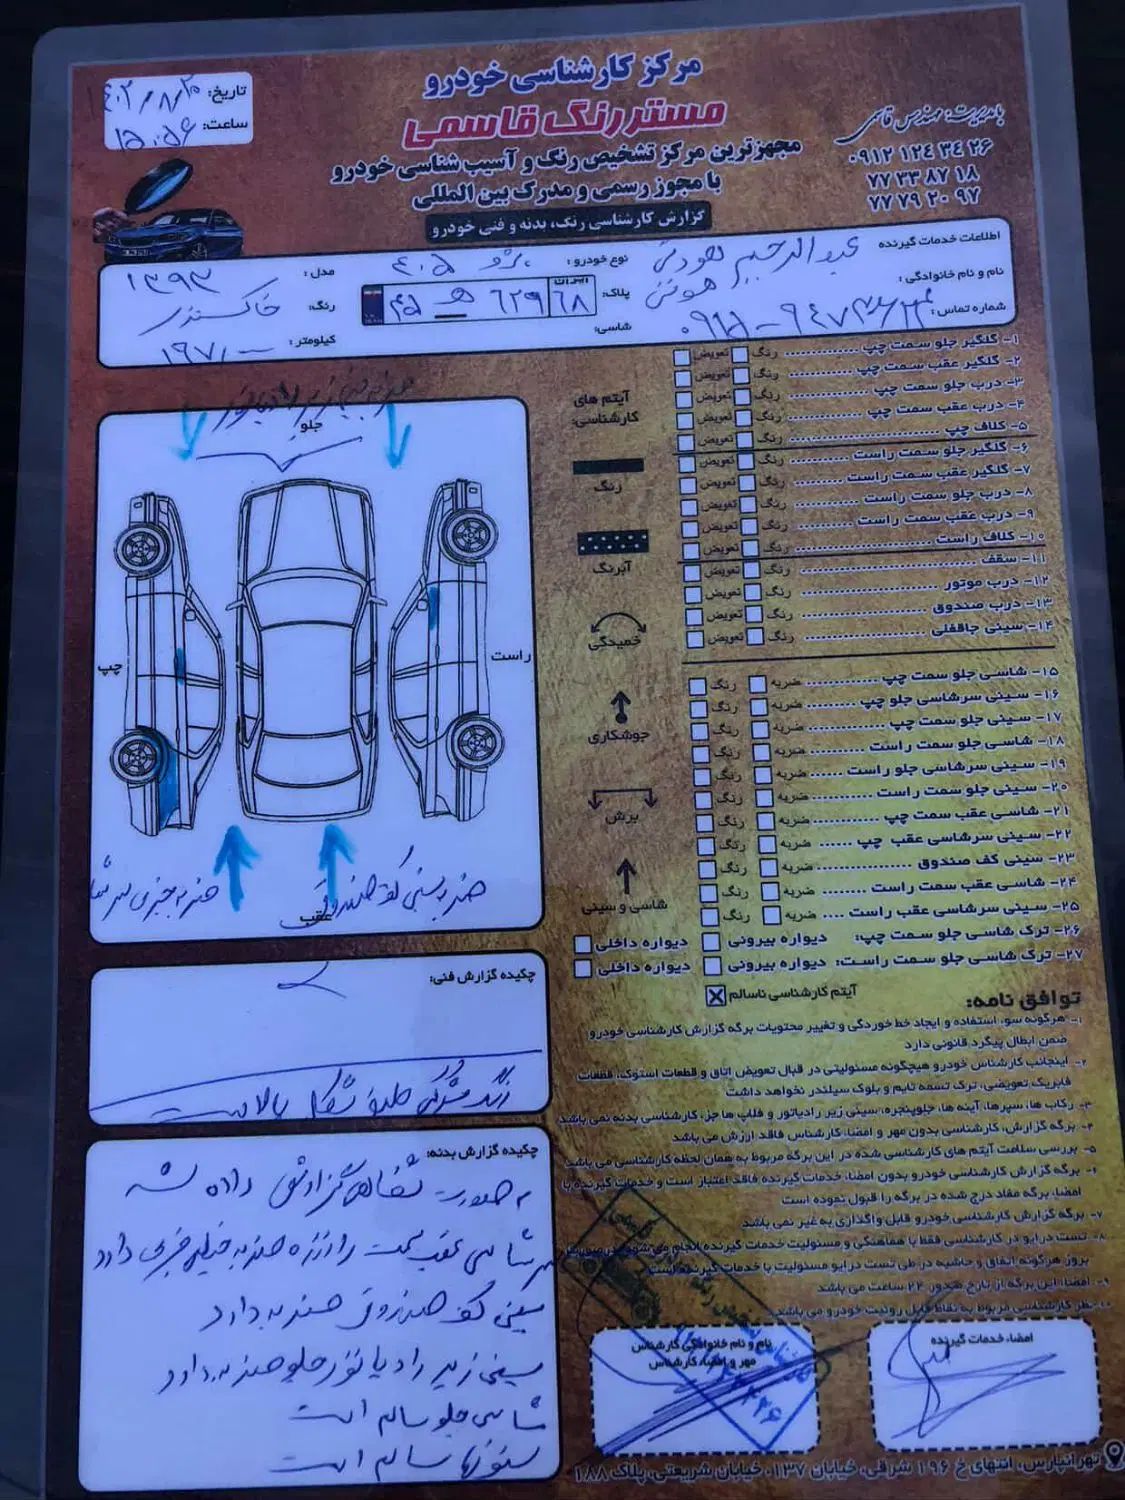 مرکز کارشناسی خودرو
مستر رنگ قاسمی
مجهزترین مرکز تشخیص رنگ و آسیب شناسی خودرو
با مجوز رسمی و مدرک بین المللی
گزارش کارشناسی رنگ، بدنه و فنی خودرو
با مدیریت: مهندس قاسمی
۰۹۱۲ ۱۲۴ ۳۴ ۲۶
۷۷ ۳۳ ۸۷ ۱۸
۷۷ ۷۹ ۲۰ ۹۷
تاریخ: ۱۴۰۲/۸/۲۰
ساعت: ۱۵:۵۶
اطلاعات خدمات گیرنده
نام و نام خانوادگی:
شماره تماس:
نوع خودرو: پژو ۴۰۵
مدل: ۱۳۹۳
پلاک: ایران ۶۸ ۶۲۹ ۴۵
رنگ: خاکستری
شاسی:
کیلومتر:
جلو
چپ
راست
عقب
ضربه سینی کف صندوق
آیتم های
کارشناسی:
رنگ
آبرنگ
خمیدگی
جوشکاری
برش
شاسی و سینی
۱- گلگیر جلو سمت چپ رنگ تعویض
۲- گلگیر عقب سمت چپ رنگ تعویض
۳- درب جلو سمت چپ رنگ تعویض
۴- درب عقب سمت چپ رنگ تعویض
۵- کلاف چپ رنگ تعویض
۶- گلگیر جلو سمت راست رنگ تعویض
۷- گلگیر عقب سمت راست رنگ تعویض
۸- درب جلو سمت راست رنگ تعویض
۹- درب عقب سمت راست رنگ تعویض
۱۰- کلاف راست رنگ تعویض
۱۱- سقف رنگ تعویض
۱۲- درب موتور رنگ تعویض
۱۳- درب صندوق رنگ تعویض
۱۴- سینی جاقفلی رنگ تعویض
۱۵- شاسی جلو سمت چپ ضربه رنگ
۱۶- سینی سرشاسی جلو چپ ضربه رنگ
۱۷- سینی جلو سمت چپ ضربه رنگ
۱۸- شاسی جلو سمت راست ضربه رنگ
۱۹- سینی سرشاسی جلو راست ضربه رنگ
۲۰- سینی جلو سمت راست ضربه رنگ
۲۱- شاسی عقب سمت چپ ضربه رنگ
۲۲- سینی سرشاسی عقب چپ ضربه رنگ
۲۳- سینی کف صندوق ضربه رنگ
۲۴- شاسی عقب سمت راست ضربه رنگ
۲۵- سینی سرشاسی عقب راست ضربه رنگ
۲۶- ترک شاسی جلو سمت چپ: دیواره بیرونی دیواره داخلی
۲۷- ترک شاسی جلو سمت راست: دیواره بیرونی دیواره داخلی
آیتم کارشناسی ناسالم
چکیده گزارش فنی:
چکیده گزارش بدنه:
به صورت شفاهی گزارش داده شد
سر شاسی عقب سمت راننده ضربه خیلی جزیی دارد
سینی کف صندوق ضربه دارد
سینی زیر رادیاتور جلو ضربه دارد
شاسی جلو سالم است
ستونها سالم است
توافق نامه:
۱- هرگونه سو، استفاده و ایجاد خط خوردگی و تغییر محتویات برگه گزارش کارشناسی خودرو
ضمن ابطال پیگرد قانونی دارد
۲- اینجانب کارشناس خودرو هیچگونه مسئولیتی در قبال تعویض اتاق و قطعات استوک، قطعات
فابریک تعویضی، ترک تسمه تایم و بلوک سیلندر نخواهد داشت
۳- رکاب ها، سپرها، آینه ها، جلوپنجره، سینی زیر رادیاتور و قلاب ها جز، کارشناسی بدنه نمی باشد
۴- برگه گزارش، کارشناسی بدون مهر و امضا، کارشناس فاقد ارزش می باشد
۵- بررسی سلامت آیتم های کارشناسی شده در این برگه مربوط به همان لحظه کارشناسی می باشد
۶- برگه گزارش کارشناسی خودرو بدون امضا، خدمات گیرنده فاقد اعتبار است و خدمات گیرنده با
امضا، برگه مفاد درج شده در برگه را قبول نموده است
۷- برگه گزارش کارشناسی خودرو قابل واگذاری به غیر نمی باشد
۸- تست درایو در کارشناسی فقط با هماهنگی و مسئولیت خدمات گیرنده انجام می شود
بروز هرگونه اتفاق و حاشیه در طی تست درایو مسئولیت با خدمات گیرنده است
۹- امضا، این برگه از تاریخ صدور ۲۴ ساعت می باشد
۱۰- نظر کارشناسی مربوط به نقاط قابل رویت خودرو می باشد
نام و نام خانوادگی کارشناس
مهر و امضاء کارشناس
امضاء خدمات گیرنده
تهرانپارس، انتهای خ ۱۹۶ شرقی، خیابان ۱۳۷، خیابان شریعتی، پلاک ۱۸۸